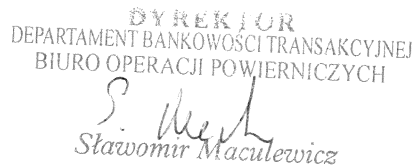 DYREKTOR
DEPARTAMENT BANKOWOŚCI TRANSAKCYJNEJ
BIURO OPERACJI POWIERNICZYCH
Sławomir Maculewicz